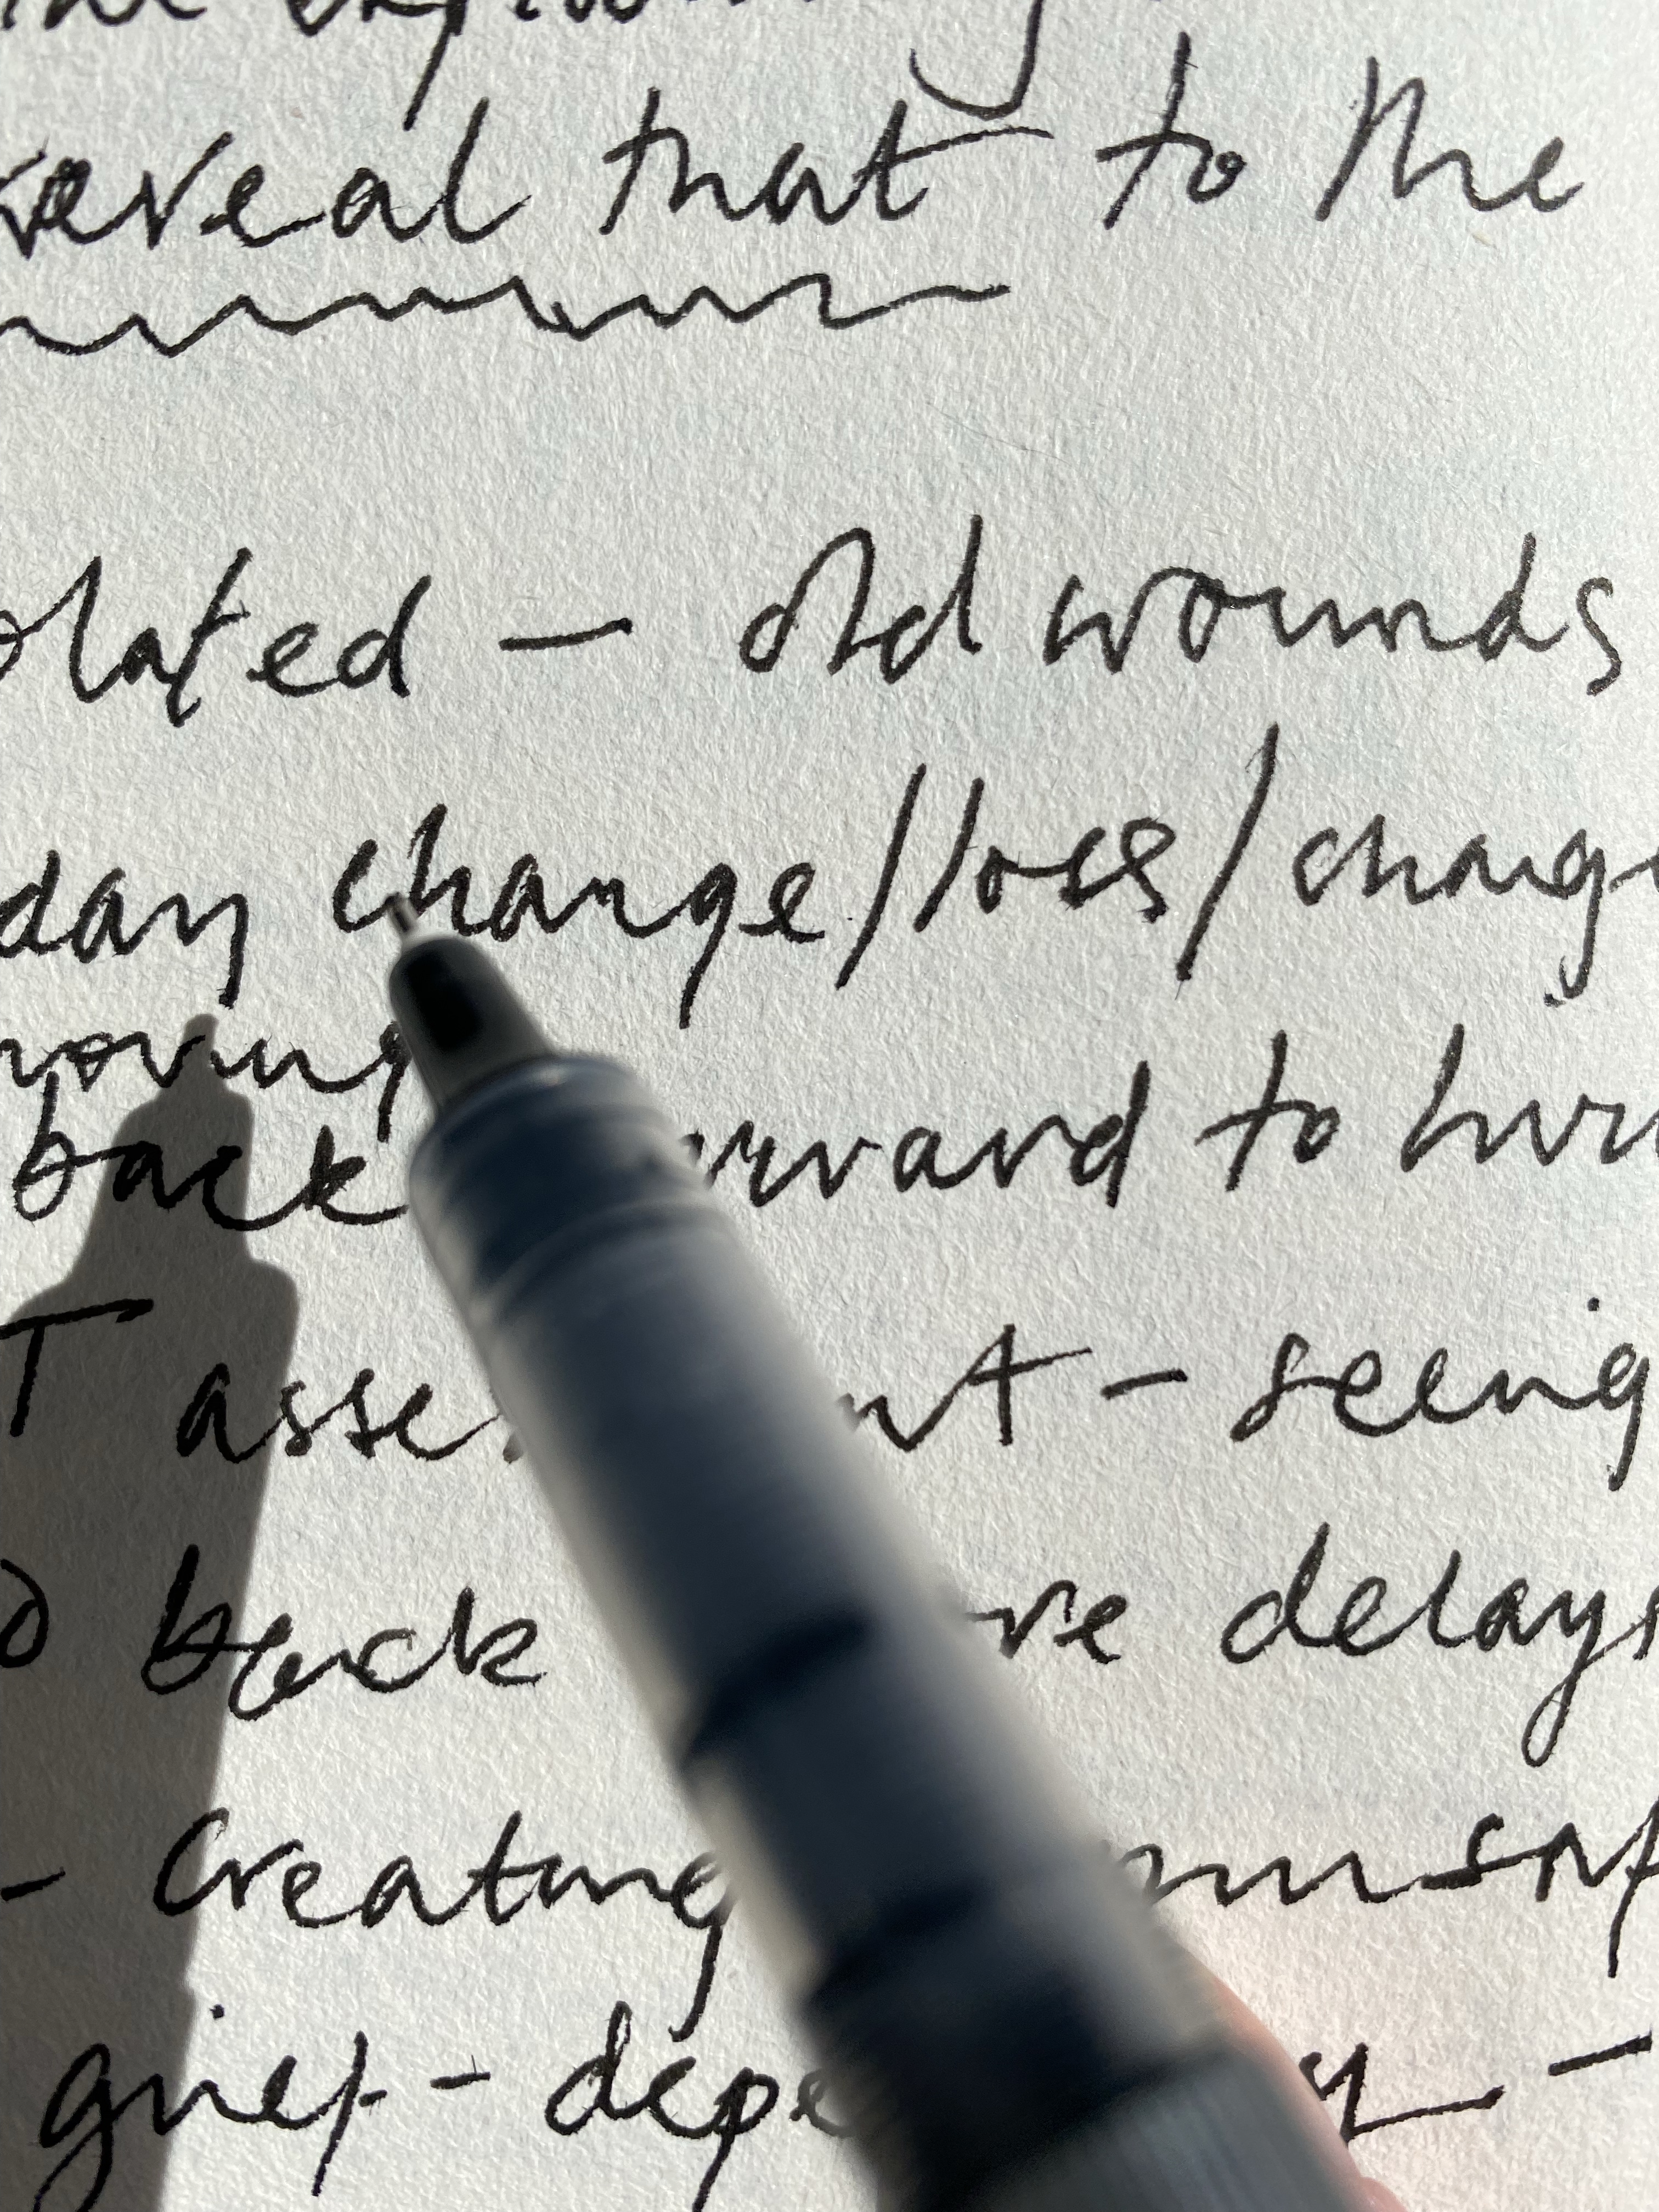 reveal that to the
olated - old wounds
day change/loss/chang
moving
back rward to
T asse nt - seeing
back ve delays
- creating
grief - depe y -